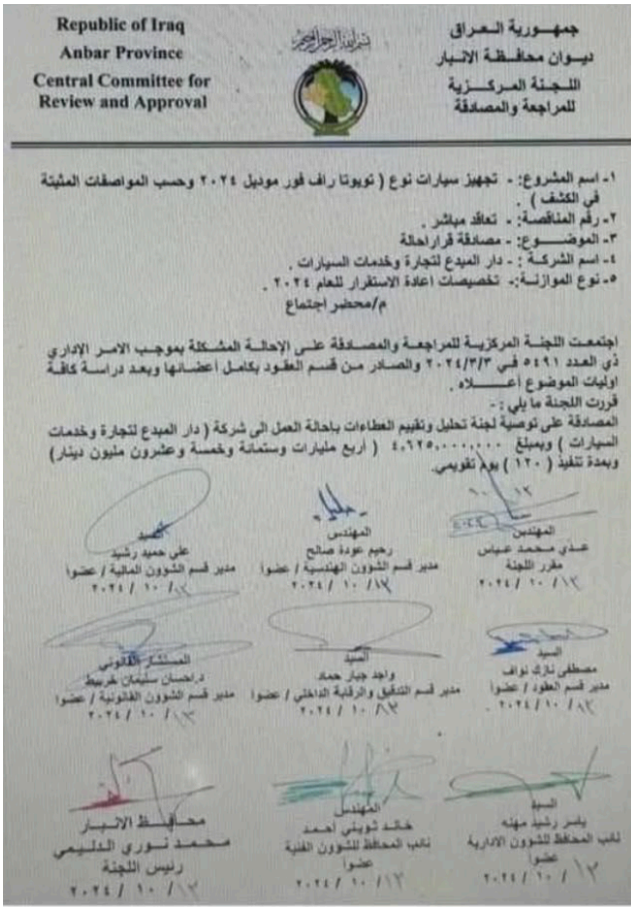 Republic of Iraq
Anbar Province
Central Committee for
Review and Approval
بسم الله الرحمن الرحيم
جمهورية العراق
ديوان محافظة الانبار
اللجنة المركزية
للمراجعة والمصادقة
١- اسم المشروع:- تجهيز سيارات نوع ( تويوتا راف فور موديل ٢٠٢٤ وحسب المواصفات المثبتة
في الكشف ) .
٢- رقم المناقصة:- تعاقد مباشر .
٣- الموضوع:- مصادقة قرار احالة
٤- اسم الشركة :- دار المبدع لتجارة وخدمات السيارات .
٥- نوع الموازنة:- تخصيصات اعادة الاستقرار للعام ٢٠٢٤ .
م/محضر اجتماع
اجتمعت اللجنة المركزية للمراجعة والمصادقة على الإحالة المشكلة بموجب الامر الإداري
ذي العدد ٥٤٩١ في ٢٠٢٤/٣/٣ والصادر من قسم العقود بكامل أعضائها وبعد دراسة كافة
اوليات الموضوع أعلاه .
قررت اللجنة ما يلي :-
المصادقة على توصية لجنة تحليل وتقييم العطاءات بإحالة العمل الى شركة ( دار المبدع لتجارة وخدمات
السيارات ) وبمبلغ ٤,٦٢٥,٠٠٠,٠٠٠ ( أربع مليارات وستمائة وخمسة وعشرون مليون دينار)
وبمدة تنفيذ ( ١٢٠ ) يوم تقويمي.
المهندس
عدي محمد عباس
مقرر اللجنة
١٣/ ١٠ / ٢٠٢٤
المهندس
رحيم عودة صالح
مدير قسم الشؤون الهندسية / عضوا
١٣/ ١٠ / ٢٠٢٤
السيد
علي حميد رشيد
مدير قسم الشؤون المالية / عضوا
١٣/ ١٠ / ٢٠٢٤
السيد
مصطفى نازك نواف
مدير قسم العقود / عضوا
١٣/ ١٠ / ٢٠٢٤
السيد
واجد جبار حماد
مدير قسم التدقيق والرقابة الداخلي / عضوا
١٣/ ١٠ / ٢٠٢٤
المستشار القانوني
د.احسان سليمان خربيط
مدير قسم الشؤون القانونية / عضوا
١٣/ ١٠ / ٢٠٢٤
السيد
ياسر رشيد مهنه
نائب المحافظ للشؤون الادارية
عضوا
١٣/ ١٠ / ٢٠٢٤
المهندس
خالد ثويني أحمد
نائب المحافظ للشؤون الفنية
عضوا
١٣/ ١٠ / ٢٠٢٤
محافظ الانبار
محمد نوري الدليمي
رئيس اللجنة
١٣/ ١٠ / ٢٠٢٤